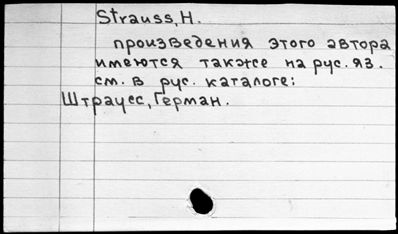 Strauss, H.
произведения этого автора
имеются также на рус. яз.
см. в рус. каталоге:
Штраусс, Герман.